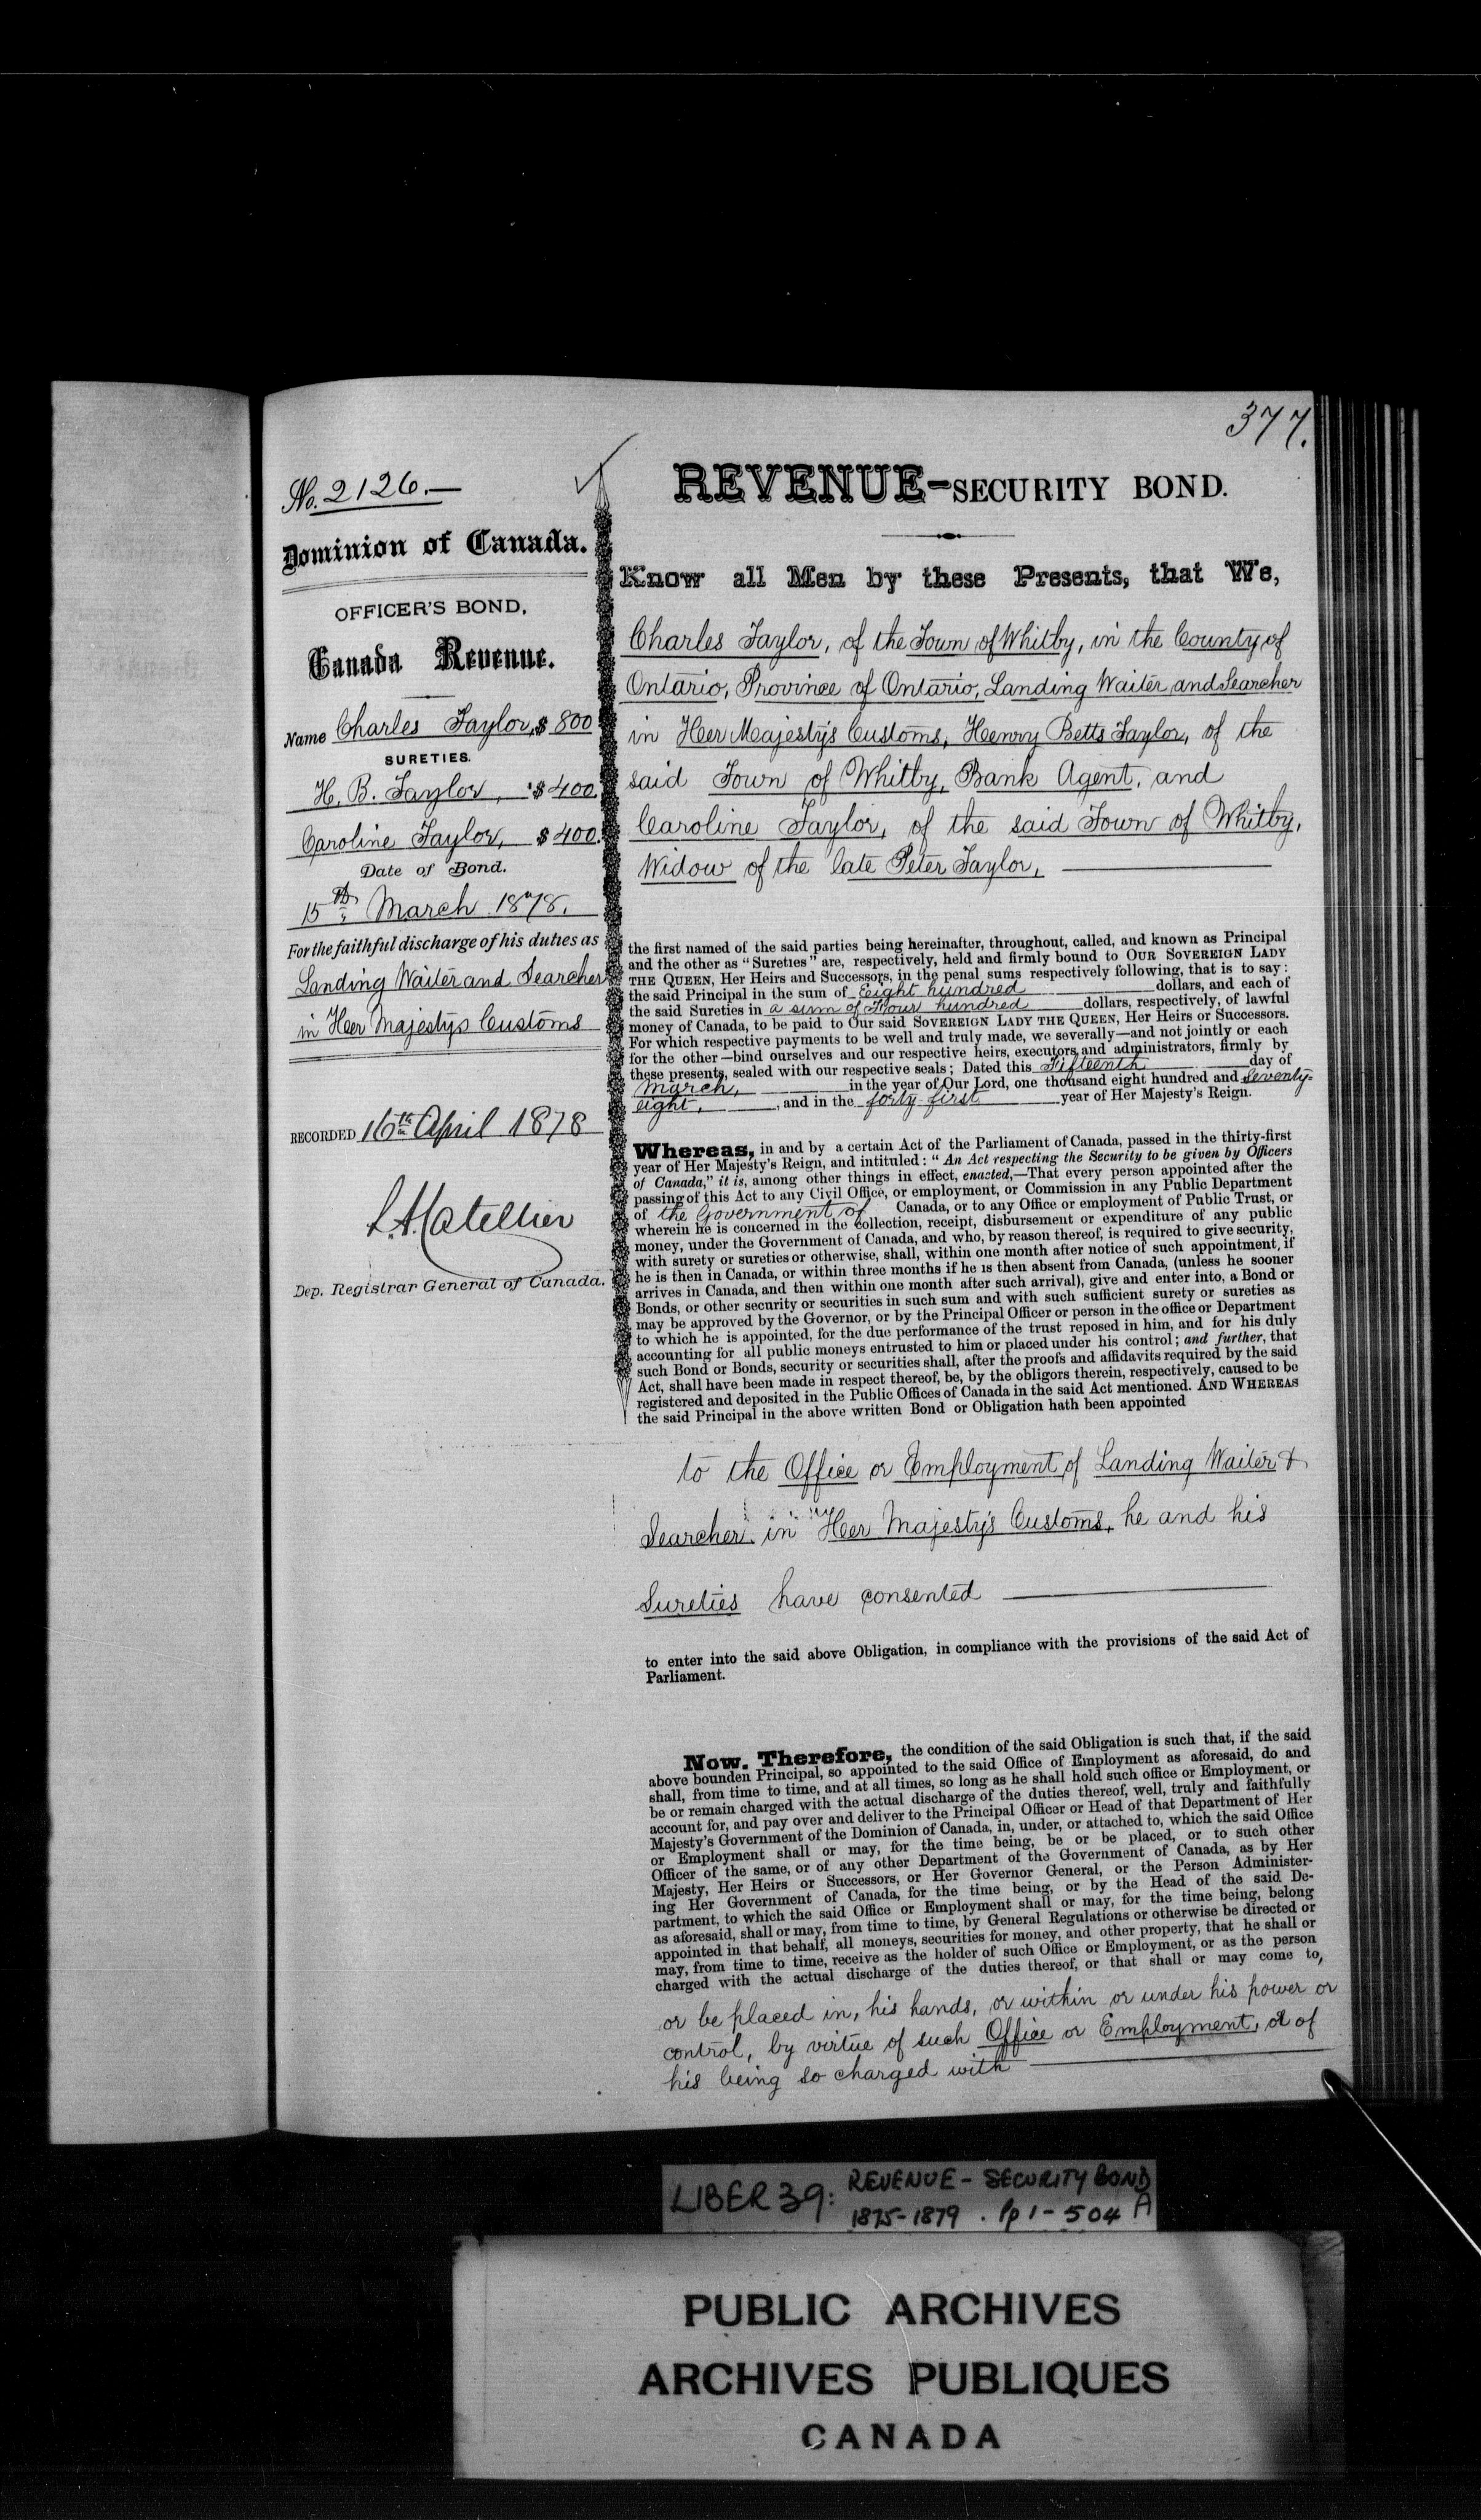 377.
No. 2126.—
Dominion of Canada.
OFFICER'S BOND,
Canada Revenue.
Name Charles Taylor, $ 800
SURETIES.
H. B. Taylor, $ 400.
Caroline Taylor, $ 400.
Date of Bond.
15th March 1878.
For the faithful discharge of his duties as
Landing Waiter and Searcher
in Her Majestys Customs
RECORDED 16th April 1878
Dep. Registrar General of Canada.
REVENUE-SECURITY BOND.
Know all Men by these Presents, that We,
Charles Taylor, of the Town of Whitby, in the County of
Ontario, Province of Ontario, Landing Waiter and Searcher
in Her Majesty's Customs, Henry Betts Taylor, of the
said Town of Whitby, Bank Agent, and
Caroline Taylor, of the said Town of Whitby,
Widow of the late Peter Taylor,
the first named of the said parties being hereinafter, throughout, called, and known as Principal
and the other as "Sureties" are, respectively, held and firmly bound to OUR SOVEREIGN LADY
THE QUEEN, Her Heirs and Successors, in the penal sums respectively following, that is to say:
the said Principal in the sum of Eight hundred dollars, and each of
the said Sureties in a sum of Four hundred dollars, respectively, of lawful
money of Canada, to be paid to Our said SOVEREIGN LADY THE QUEEN, Her Heirs or Successors.
For which respective payments to be well and truly made, we severally—and not jointly or each
for the other—bind ourselves and our respective heirs, executors and administrators, firmly by
these presents, sealed with our respective seals; Dated this Fifteenth day of
March, in the year of Our Lord, one thousand eight hundred and Seventy-
eight, , and in the forty first year of Her Majesty's Reign.
Whereas, in and by a certain Act of the Parliament of Canada, passed in the thirty-first
year of Her Majesty's Reign, and intituled: "An Act respecting the Security to be given by Officers
of Canada," it is, among other things in effect, enacted,—That every person appointed after the
passing of this Act to any Civil Office, or employment, or Commission in any Public Department
of the Government of Canada, or to any Office or employment of Public Trust, or
wherein he is concerned in the collection, receipt, disbursement or expenditure of any public
money, under the Government of Canada, and who, by reason thereof, is required to give security,
with surety or sureties or otherwise, shall, within one month after notice of such appointment, if
he is then in Canada, or within three months if he is then absent from Canada, (unless he sooner
arrives in Canada, and then within one month after such arrival), give and enter into, a Bond or
Bonds, or other security or securities in such sum and with such sufficient surety or sureties as
may be approved by the Governor, or by the Principal Officer or person in the office or Department
to which he is appointed, for the due performance of the trust reposed in him, and for his duly
accounting for all public moneys entrusted to him or placed under his control; and further, that
such Bond or Bonds, security or securities shall, after the proofs and affidavits required by the said
Act, shall have been made in respect thereof, be, by the obligors therein, respectively, caused to be
registered and deposited in the Public Offices of Canada in the said Act mentioned. AND WHEREAS
the said Principal in the above written Bond or Obligation hath been appointed
to the Office or Employment of Landing Waiter &
Searcher in Her Majesty's Customs, he and his
Sureties have consented
to enter into the said above Obligation, in compliance with the provisions of the said Act of
Parliament.
Now. Therefore, the condition of the said Obligation is such that, if the said
above bounden Principal, so appointed to the said Office of Employment as aforesaid, do and
shall, from time to time, and at all times, so long as he shall hold such office or Employment, or
be or remain charged with the actual discharge of the duties thereof, well, truly and faithfully
account for, and pay over and deliver to the Principal Officer or Head of that Department of Her
Majesty's Government of the Dominion of Canada, in, under, or attached to, which the said Office
or Employment shall or may, for the time being, be or be placed, or to such other
Officer of the same, or of any other Department of the Government of Canada, as by Her
Majesty, Her Heirs or Successors, or Her Governor General, or the Person Administer-
ing Her Government of Canada, for the time being, or by the Head of the said De-
partment, to which the said Office or Employment shall or may, for the time being, belong
as aforesaid, shall or may, from time to time, by General Regulations or otherwise be directed or
appointed in that behalf, all moneys, securities for money, and other property, that he shall or
may, from time to time, receive as the holder of such Office or Employment, or as the person
charged with the actual discharge of the duties thereof, or that shall or may come to,
or be placed in, his hands, or within or under his power or
control, by virtue of such Office or Employment, or of
his being so charged with
LIBER 39: REVENUE - SECURITY BOND
1875-1879 . Pp 1 - 504 A
PUBLIC ARCHIVES
ARCHIVES PUBLIQUES
CANADA